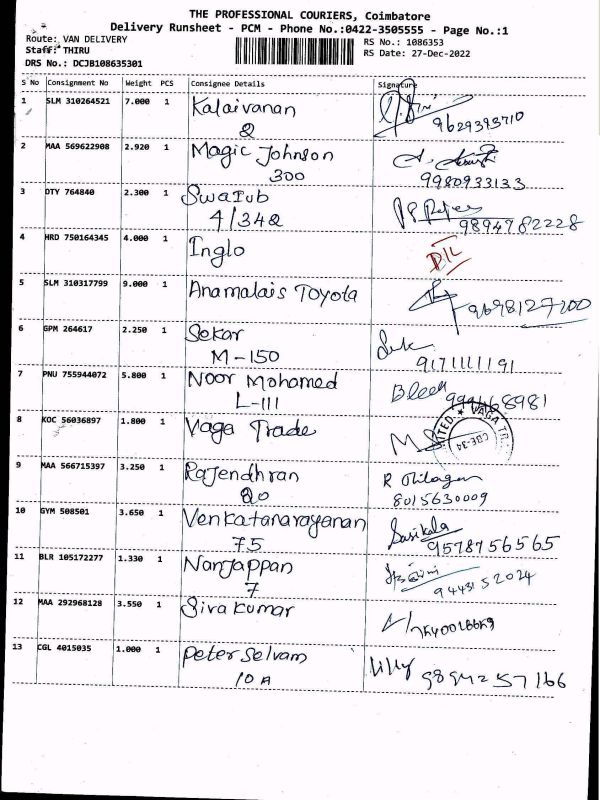 THE PROFESSIONAL COURIERS, Coimbatore
Delivery Runsheet - PCM - Phone No.:0422-3505555 - Page No.:1
Route: VAN DELIVERY
RS No.: 1086353
Staff: THIRU
RS Date: 27-Dec-2022
DRS No.: DCJB108635301
S No Consignment No Weight PCS Consignee Details Signature
1 SLM 310264521 7.000 1 Kalaivanan
2 9629393710
2 MAA 569622908 2.920 1 Magic Johnson
300 9980933133
3 DTY 764840 2.300 1 Swarub
4/342 9894782228
4 HRD 750164345 4.000 1 Inglo
5 SLM 310317799 9.000 1 Anamalais Toyota 9698127200
6 GPM 264617 2.250 1 Sekar
M-150 9171111191
7 PNU 755944072 5.800 1 Noor Mohamed
L-111
8 KOC 56036897 1.800 1 Vaga Trade
9 MAA 566715397 3.250 1 Rajendhran
20 8015630009
10 GYM 508501 3.650 1 Venkatanarayanan Sasikala
75 9578756565
11 BLR 105172277 1.330 1 Nanjappan
7 9443152024
12 MAA 292968128 3.550 1 Sivakumar
13 CGL 4015035 1.000 1 Peter Selvam Lilly
10A 9894257166